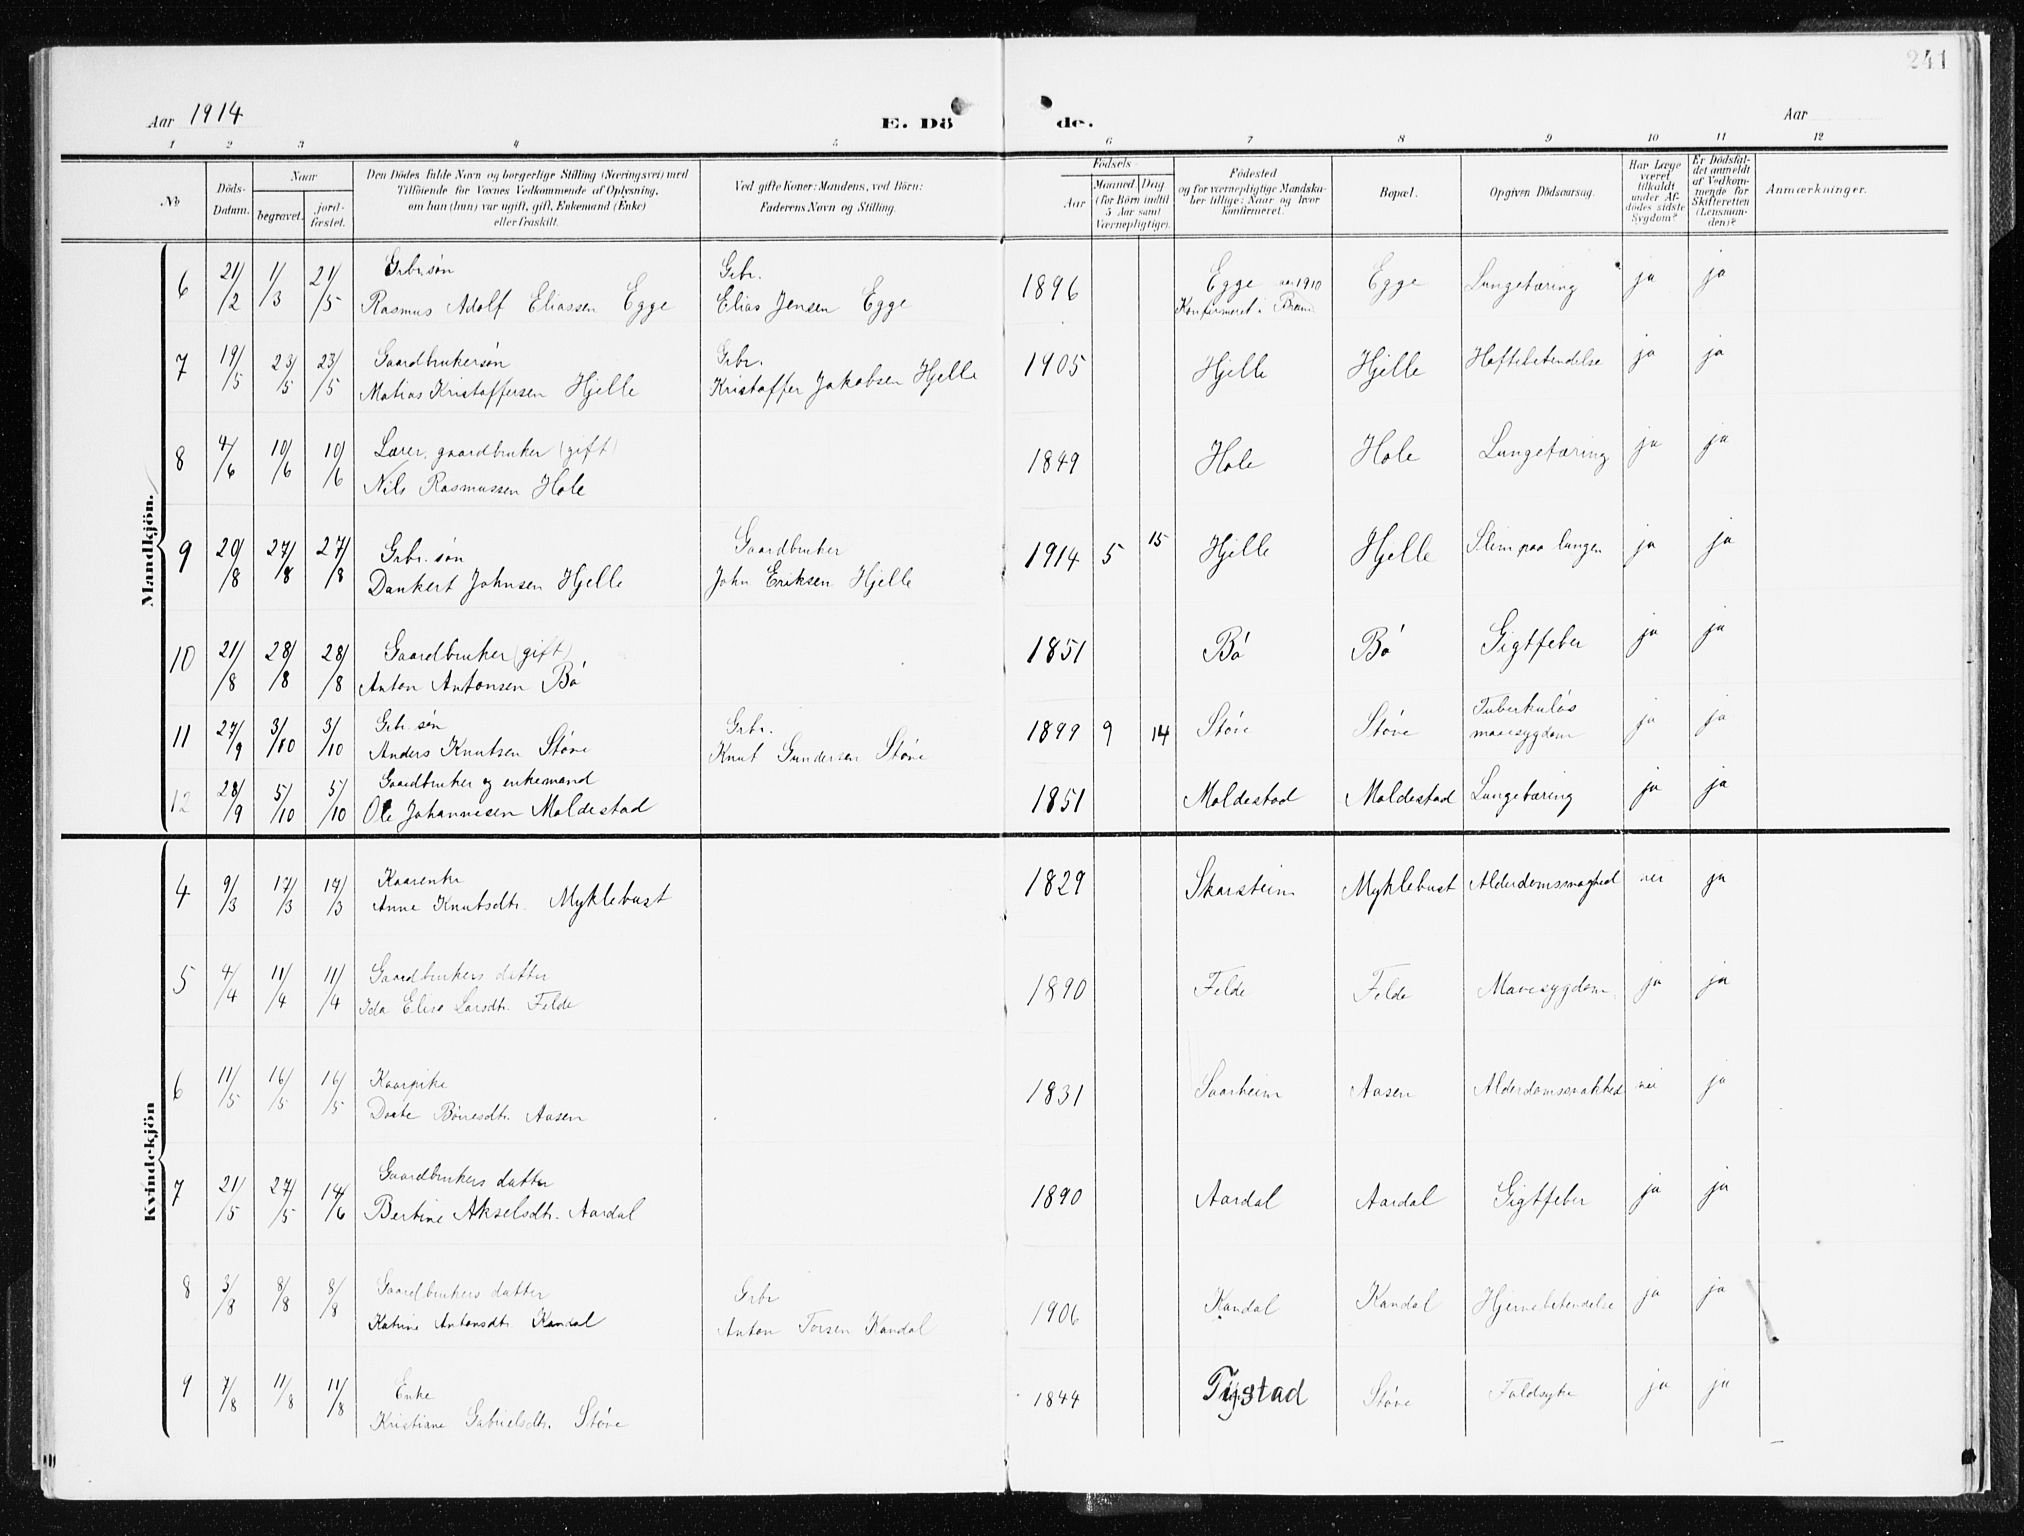 241
Aar 1914
E. Dö de.
Aar
1 2 3 4 5 6 7 8 9 10 11 12
No
Döds-Datum.
Naar
begravet.
jord-fæstet.
Den Dödes fulde Navn og borgerlige Stilling (Næringsvei) med
Tilföiende for Voxnes Vedkommende af Oplysning,
om han (hun) var ugift, gift, Enkemand (Enke)
eller fraskilt.
Ved gifte Koner: Mandens, ved Börn:
Faderens Navn og Stilling.
Födsels-
Aar
Maaned Dag
(for Börn indtil
5 Aar samt
Værnepligtige).
Födested
og for værnepligtige Mandska-
ber tillige: Naar og hvor
konfirmeret.
Bopæl.
Opgiven Dödsaarsag.
Har Læge
været
tilkaldt
under Af-
dödes sidste
Sygdom?
Er Dödsfal-
det anmeldt
af Vedkom-
mende for
Skifteretten
(Lensman-
den)?
Anmærkninger.
Mandkjön.
Grbr. søn Grbr. Egge 1910
6 21/2 1/3 21/5 Rasmus Adolf Eliassen Egge Elias Jensen Egge 1896 Konfirmeret i Egge Lungetæring ja ja
Gaardbrukersøn Grbr.
7 19/5 23/5 23/5 Matias Kristoffersen Hjelle Kristoffer Jakobsen Hjelle 1905 Hjelle Hjelle Hoftebetendelse ja ja
Lærer, gaardbruker (gift)
8 4/6 10/6 10/6 Nils Rasmussen Hole 1849 Hole Hole Lungetæring ja ja
Grbr. søn Gaardbruker
9 20/8 27/8 27/8 Dankert Johnsen Hjelle John Eriksen Hjelle 1914 5 15 Hjelle Hjelle Slim paa lungen ja ja
Gaardbruker (gift)
10 21/8 28/8 28/8 Anton Antonsen Bø 1851 Bø Bø Gigtfeber ja ja
Grbr. søn Grbr. Tuberkuløs
11 27/9 3/10 3/10 Anders Knutsen Støve Knut Gundersen Støve 1899 9 14 Støve Støve mavesygdom ja ja
Gaardbruker og enkemand
12 28/9 5/10 5/10 Ole Johannesen Moldestad 1851 Moldestad Moldestad Lungetæring ja ja
Kvindekjön
Kaarenke
4 9/3 17/3 17/3 Anne Knutsdtr. Myklebust 1829 Skarstein Myklebust nei ja
Gaardbrukers datter
5 4/4 11/4 11/4 Ida Elise Larsdtr. Felde 1890 Felde Felde Mavesygdom ja ja
Kaarpike
6 11/5 16/5 16/5 Dorte Børresdtr. Aasen 1831 Aasen Alderdomssvakhed nei ja
Gaardbrukers datter
7 21/5 27/5 14/6 Bertine Akselsdtr. Aardal 1890 Aardal Aardal Gigtfeber ja ja
Gaardbrukers datter Grbr
8 3/8 8/8 8/8 Katrine Antonsdtr. Kandal Anton Torsen Kandal 1906 Kandal Kandal Hjernebetendelse ja ja
Enke
9 7/8 11/8 11/8 Kristiane Gabrielsdtr. Støve 1844 Tystad Støve Faldsyke ja ja